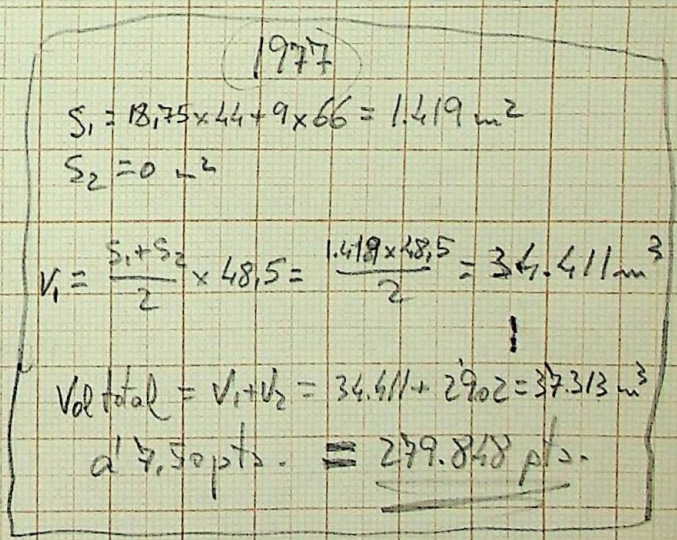 1977
S₁ = 18,75 x 44 + 9 x 66 = 1.419 m²
S₂ = 0 m²
V₁ = (S₁ + S₂)/2 x 48,5 = (1.419 x 48,5)/2 = 34.411 m³
Vol total = V₁ + V₂ = 34.411 + 2902 = 37.313 m³
a' 7,50 pts. = 279.848 pts.